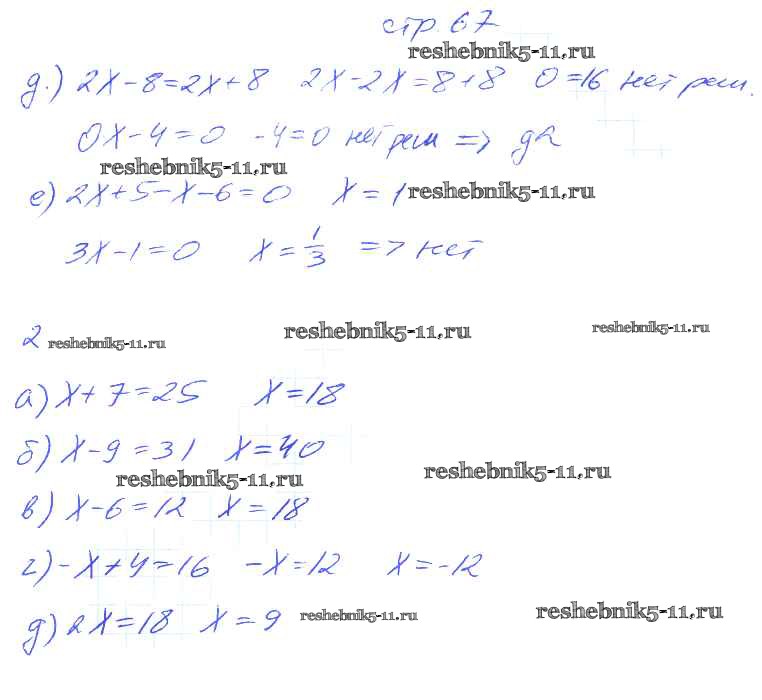 стр. 67
reshebnik5-11.ru
д.) 2x-8=2x+8 2x-2x=8+8 0=16 нет реш.
0x-4=0 -4=0 нет реш => да
reshebnik5-11.ru
е) 2x+5-x-6=0 x=1 reshebnik5-11.ru
3x-1=0 x=1/3 => нет
2 reshebnik5-11.ru reshebnik5-11.ru reshebnik5-11.ru
а) x+7=25 x=18
б) x-9=31 x=40
reshebnik5-11.ru reshebnik5-11.ru
в) x-6=12 x=18
г) -x+4=16 -x=12 x=-12
д) 2x=18 x=9 reshebnik5-11.ru reshebnik5-11.ru